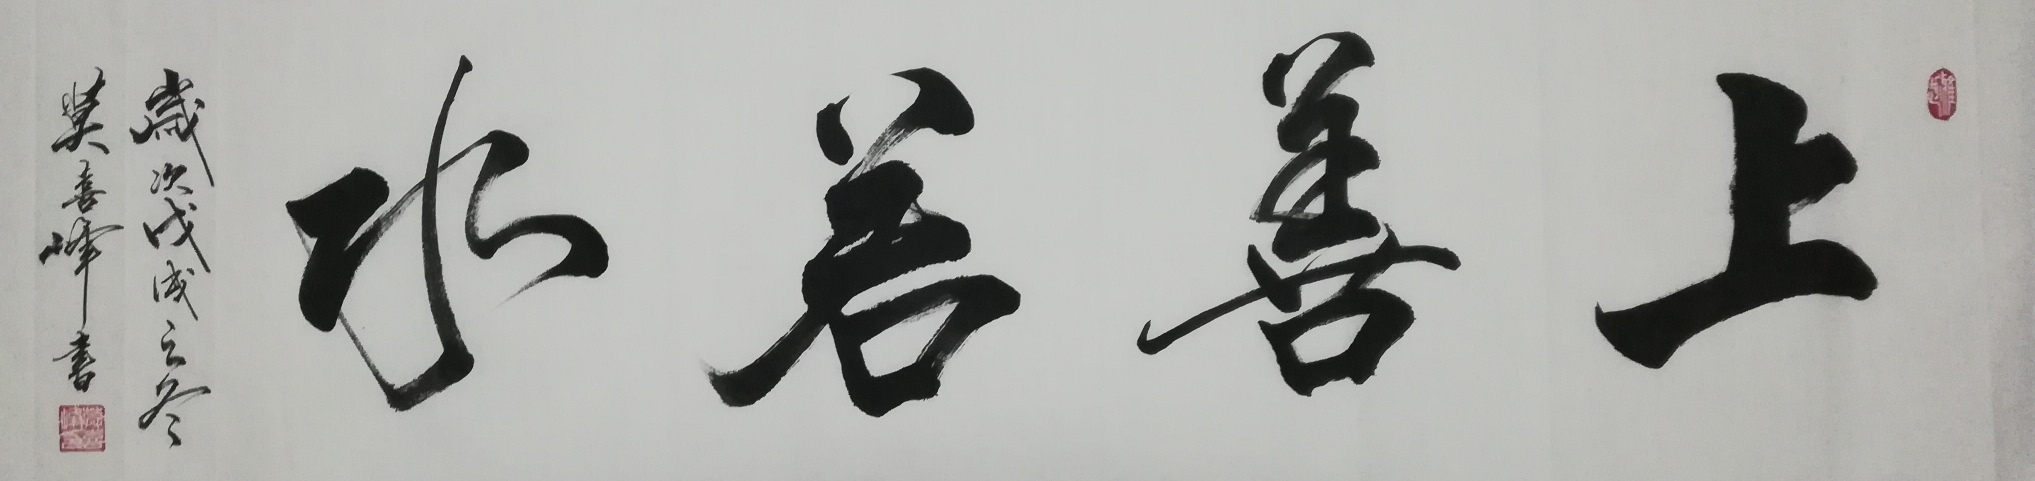 上善若水
歲次戊戌之冬
樊喜峰書